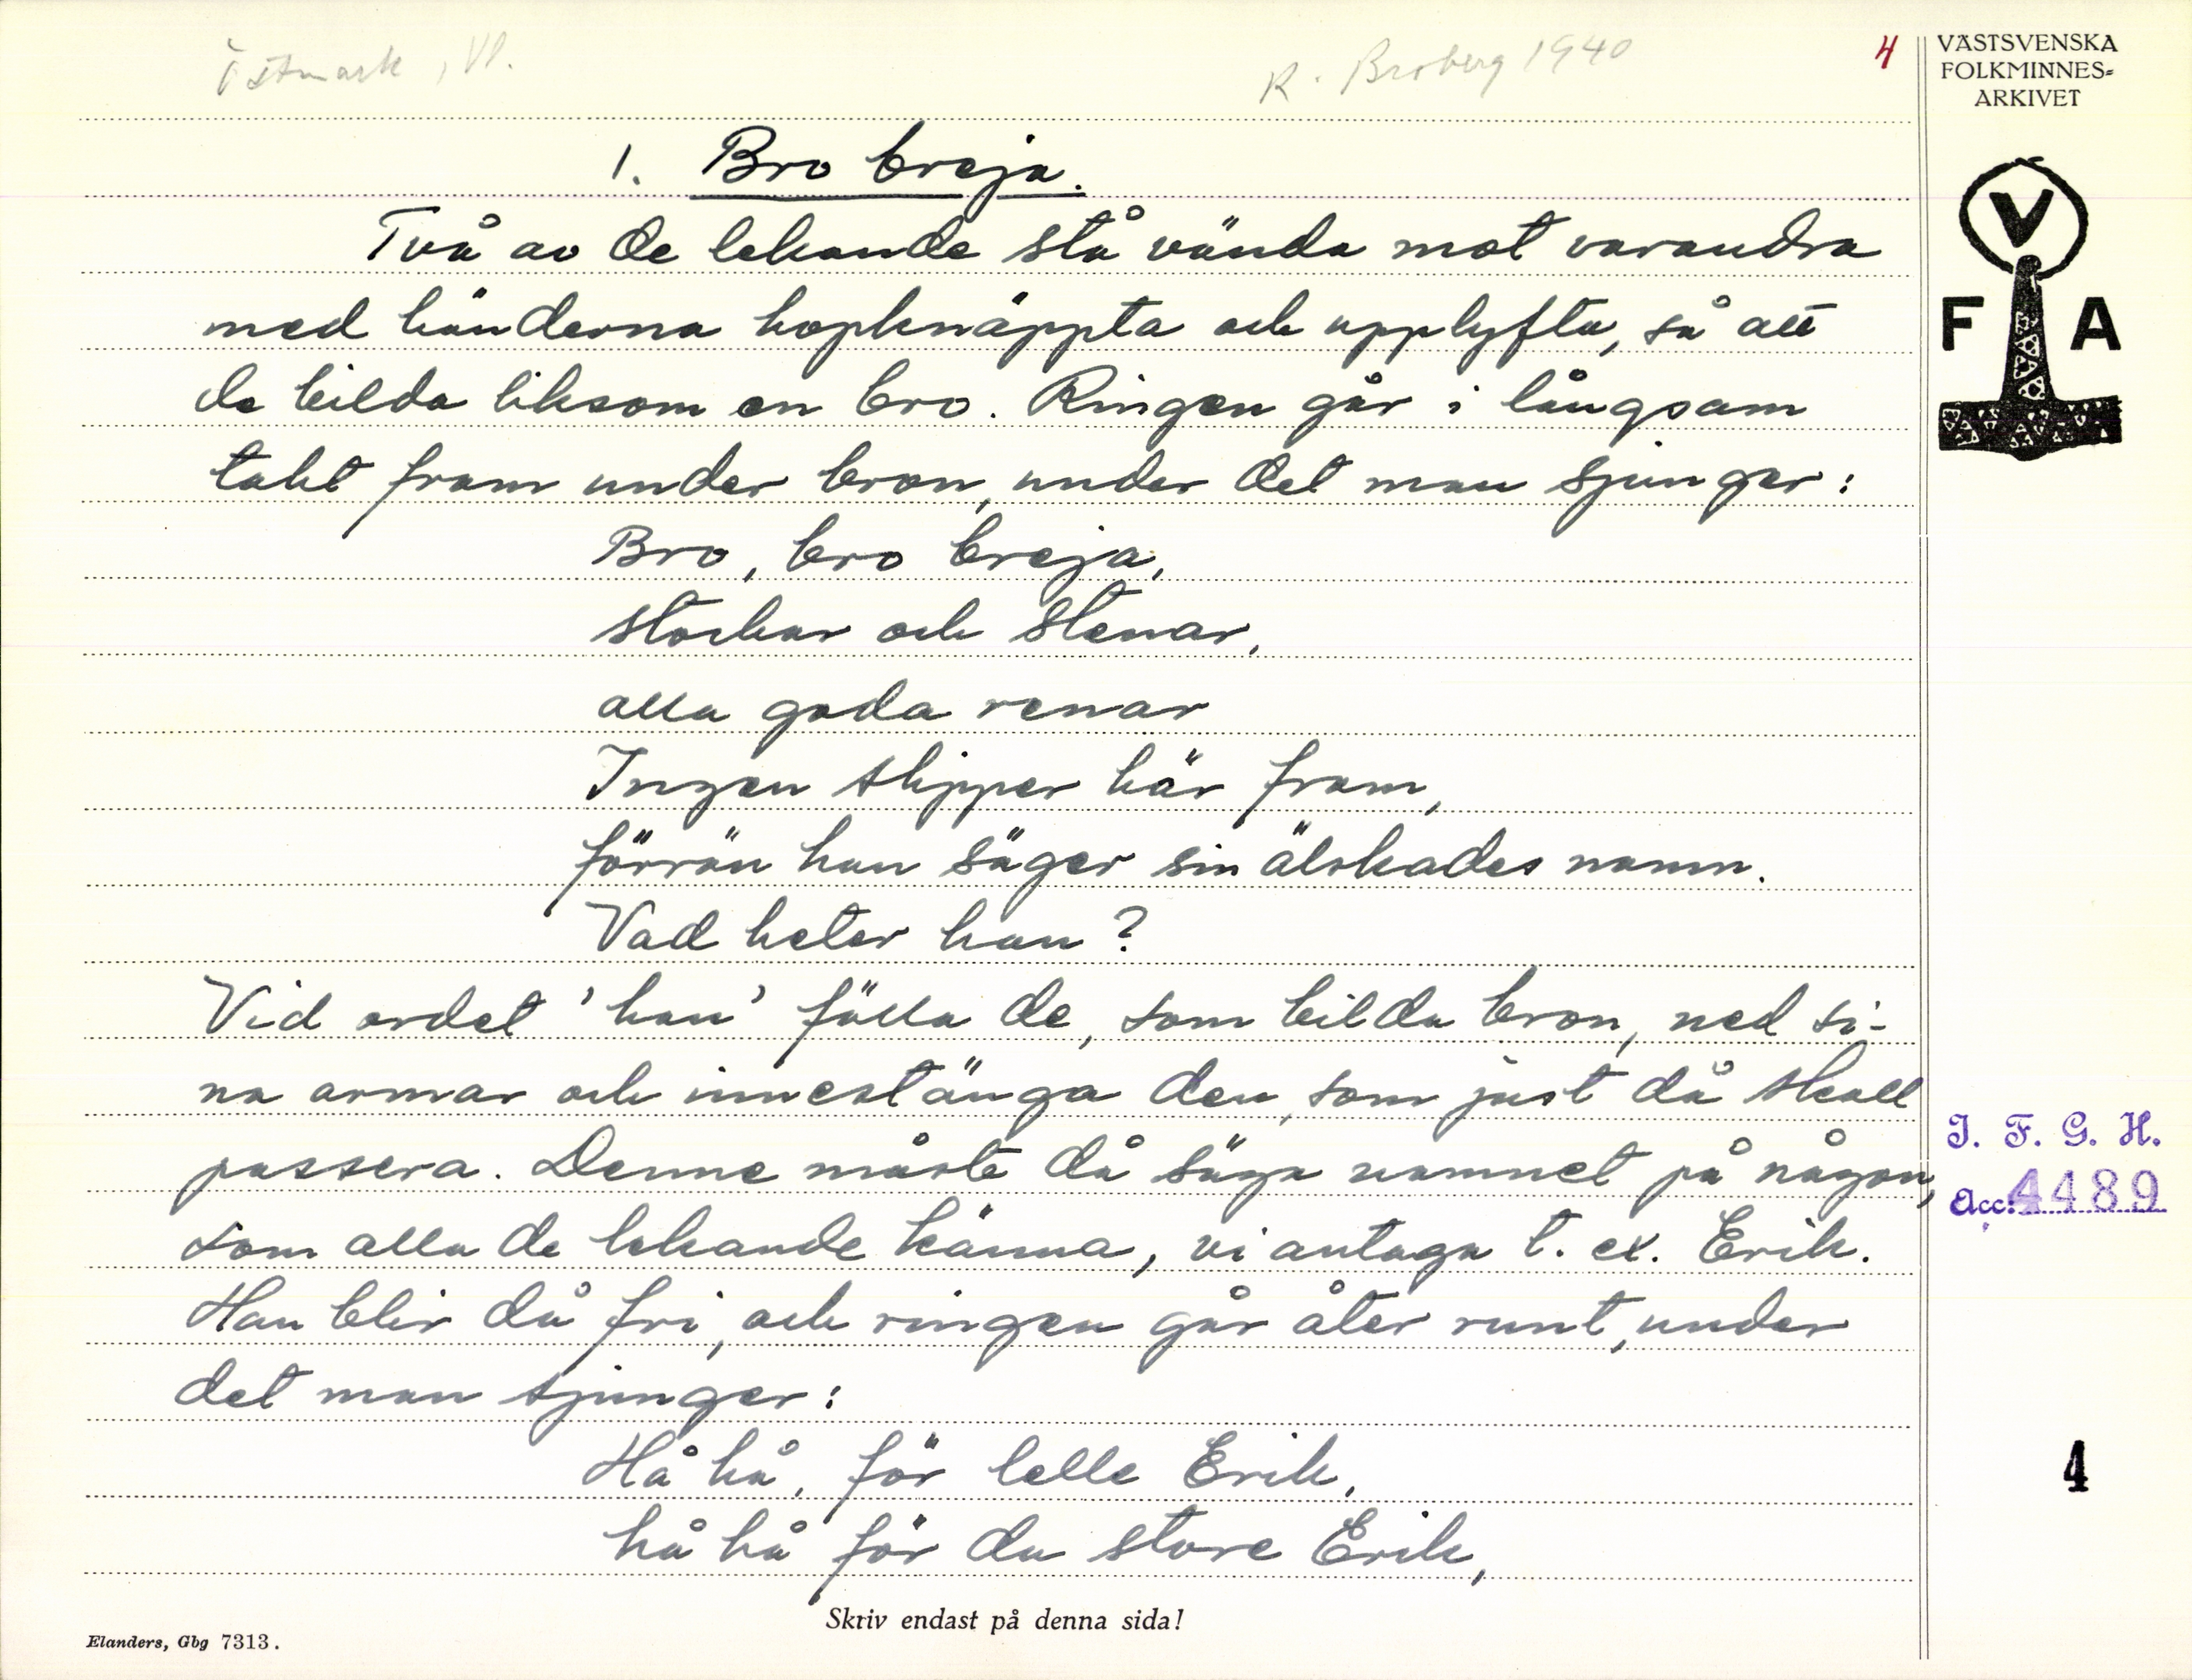 Östmark, Vl.
R. Broberg 1940
4
VÄSTSVENSKA
FOLKMINNES=
ARKIVET
V
F A
1. Bro breja.
Två av de lekande stå vända mot varandra
med händerna hopknäppta och upplyfta, så att
de bilda liksom en bro. Ringen går i långsam
takt fram under bron, under det man sjunger:
Bro, bro breja,
stockar och stenar,
alla goda renar
Ingen slipper här fram,
förrän han säger sin älskades namn.
Vad heter han?
Vid ordet 'han' fälla de, som bilda bron, ned si-
na armar och innestänga den, som just då skall
passera. Denne måste då säga namnet på någon,
som alla de lekande känna, vi antaga t. ex. Erik.
Han blir då fri, och ringen går åter runt, under
det man sjunger:
Hå hå, för lelle Erik,
hå hå för du store Erik,
I. F. G. H.
Acc: 4489
4
Skriv endast på denna sida!
Elanders, Gbg 7313.